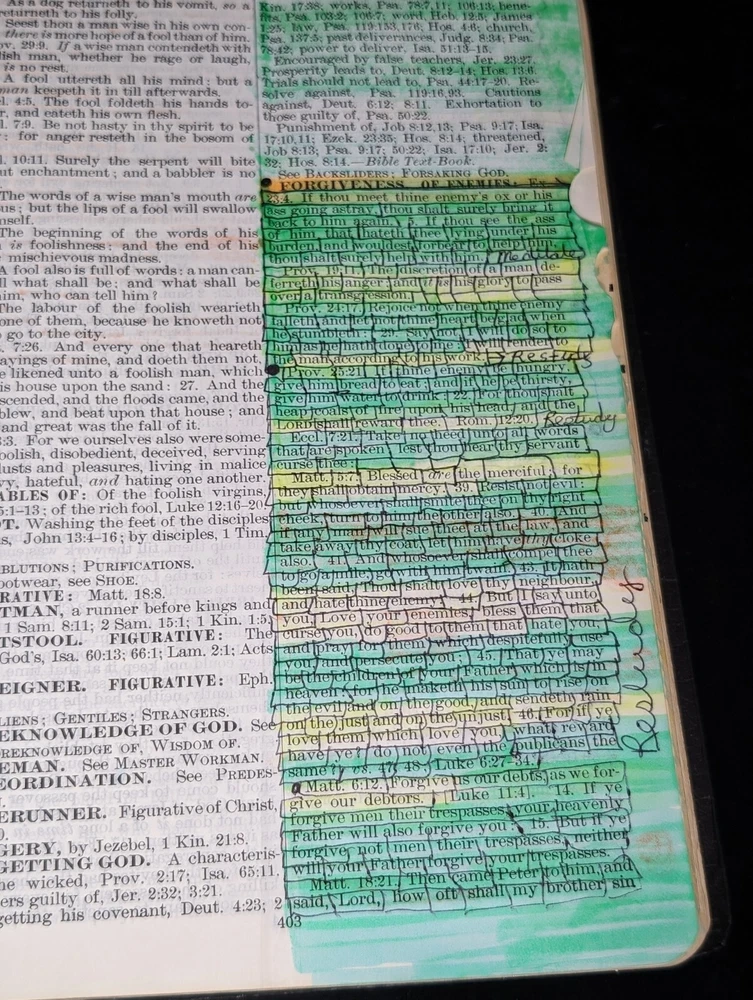 As a dog returneth to his vomit, so a
returneth to his folly.
Seest thou a man wise in his own con-
there is more hope of a fool than of him.
ov. 29:9. If a wise man contendeth with
lish man, whether he rage or laugh,
is no rest.
A fool uttereth all his mind: but a
man keepeth it in till afterwards.
l. 4:5. The fool foldeth his hands to-
r, and eateth his own flesh.
l. 7:9. Be not hasty in thy spirit to be
: for anger resteth in the bosom of
l. 10:11. Surely the serpent will bite
ut enchantment; and a babbler is no
The words of a wise man's mouth are
us; but the lips of a fool will swallow
mself.
The beginning of the words of his
is foolishness: and the end of his
mischievous madness.
A fool also is full of words: a man can-
ll what shall be; and what shall be
him, who can tell him?
The labour of the foolish wearieth
one of them, because he knoweth not
go to the city.
. 7:26. And every one that heareth
ayings of mine, and doeth them not,
e likened unto a foolish man, which
is house upon the sand: 27. And the
scended, and the floods came, and the
blew, and beat upon that house; and
and great was the fall of it.
3:3. For we ourselves also were some-
oolish, disobedient, deceived, serving
lusts and pleasures, living in malice
vy, hateful, and hating one another.
ABLES OF: Of the foolish virgins,
5:1-13; of the rich fool, Luke 12:16-20
OT. Washing the feet of the disciples
s, John 13:4-16; by disciples, 1 Tim.
BLUTIONS; PURIFICATIONS.
ootwear, see SHOE.
RATIVE: Matt. 18:8.
TMAN, a runner before kings and
1 Sam. 8:11; 2 Sam. 15:1; 1 Kin. 1:5
TSTOOL. FIGURATIVE: The
God's, Isa. 60:13; 66:1; Lam. 2:1; Acts
EIGNER. FIGURATIVE: Eph.
LIENS; GENTILES; STRANGERS.
EKNOWLEDGE OF GOD. See
OREKNOWLEDGE OF, WISDOM OF.
EMAN. See MASTER WORKMAN.
EORDINATION. See PREDES-
ERUNNER. Figurative of Christ,
0.
GERY, by Jezebel, 1 Kin. 21:8.
GETTING GOD. A characteris-
he wicked, Prov. 2:17; Isa. 65:11.
ers guilty of, Jer. 2:32; 3:21.
getting his covenant, Deut. 4:23; 2
Kin. 17:38; works, Psa. 78:7,11; 106:13; bene-
fits, Psa. 103:2; 106:7; word, Heb. 12:5; James
1:25; law, Psa. 119:153,176; Hos. 4:6; church,
Psa. 137:5; past deliverances, Judg. 8:34; Psa.
78:42; power to deliver, Isa. 51:13-15.
Encouraged by false teachers, Jer. 23:27.
Prosperity leads to, Deut. 8:12-14; Hos. 13:6.
Trials should not lead to, Psa. 44:17-20. Re-
solve against, Psa. 119:16,93. Cautions
against, Deut. 6:12; 8:11. Exhortation to
those guilty of, Psa. 50:22.
Punishment of, Job 8:12,13; Psa. 9:17; Isa.
17:10,11; Ezek. 23:35; Hos. 8:14; threatened,
Job 8:13; Psa. 9:17; 50:22; Isa. 17:10; Jer. 2:
32; Hos. 8:14.—Bible Text-Book.
See BACKSLIDERS; FORSAKING GOD.
FORGIVENESS OF ENEMIES: Ex.
23:4. If thou meet thine enemy's ox or his
ass going astray, thou shalt surely bring it
back to him again. 5. If thou see the ass
of him that hateth thee lying under his
burden, and wouldest forbear to help him,
thou shalt surely help with him. Meditate
Prov. 19:11. The discretion of a man de-
ferreth his anger; and it is his glory to pass
over a transgression.
Prov. 24:17. Rejoice not when thine enemy
falleth, and let not thine heart be glad when
he stumbleth: 29. Say not, I will do so to
him as he hath done to me: I will render to
the man according to his work. Restudy
Prov. 25:21. If thine enemy be hungry,
give him bread to eat; and if he be thirsty,
give him water to drink: 22. For thou shalt
heap coals of fire upon his head, and the
LORD shall reward thee. Rom. 12:20. Restudy
Eccl. 7:21. Take no heed unto all words
that are spoken; lest thou hear thy servant
curse thee:
Matt. 5:7. Blessed are the merciful: for
they shall obtain mercy. 39. Resist not evil:
but whosoever shall smite thee on thy right
cheek, turn to him the other also. 40. And
if any man will sue thee at the law, and
take away thy coat, let him have thy cloke
also. 41. And whosoever shall compel thee
to go a mile, go with him twain. 43. It hath
been said, Thou shalt love thy neighbour,
and hate thine enemy. 44. But I say unto
you, Love your enemies, bless them that
curse you, do good to them that hate you,
and pray for them which despitefully use
you, and persecute you; 45. That ye may
be the children of your Father which is in
heaven: for he maketh his sun to rise on
the evil and on the good, and sendeth rain
on the just and on the unjust. 46. For if ye
love them which love you, what reward
have ye? do not even the publicans the
same? vs. 47, 48; Luke 6:27-34.
Restudy
Matt. 6:12. Forgive us our debts, as we for-
give our debtors. [Luke 11:4]. 14. If ye
forgive men their trespasses, your heavenly
Father will also forgive you: 15. But if ye
forgive not men their trespasses, neither
will your Father forgive your trespasses.
Matt. 18:21. Then came Peter to him, and
said, Lord, how oft shall my brother sin
403